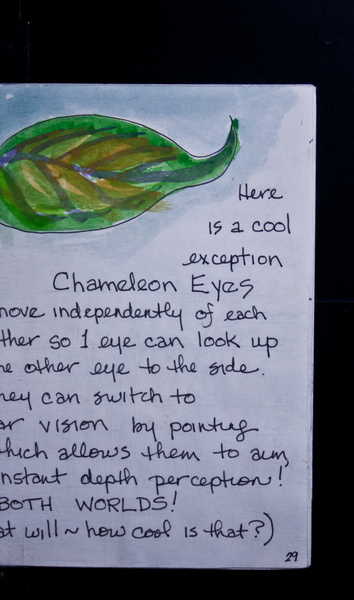 Here
is a cool
exception
Chameleon Eyes
move independently of each
ther so 1 eye can look up
he other eye to the side.
hey can switch to
ar vision by pointing
which allows them to aim
instant depth perception!
BOTH WORLDS!
at will ~ how cool is that?)
29